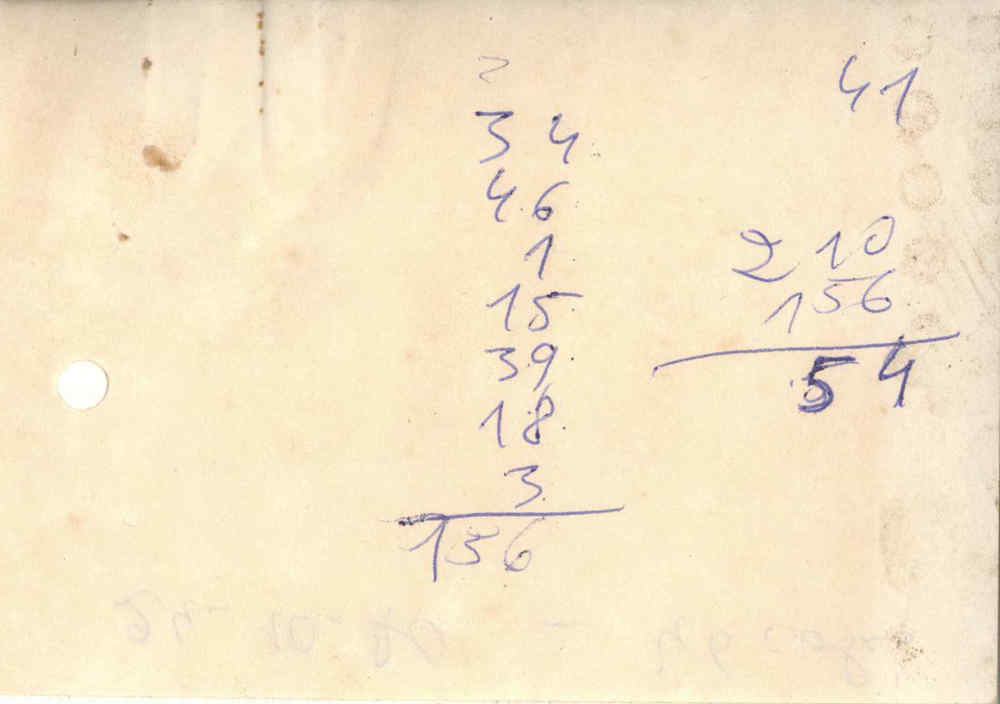 2
34
46
1
15
39
18
3
156
41
210
156
54